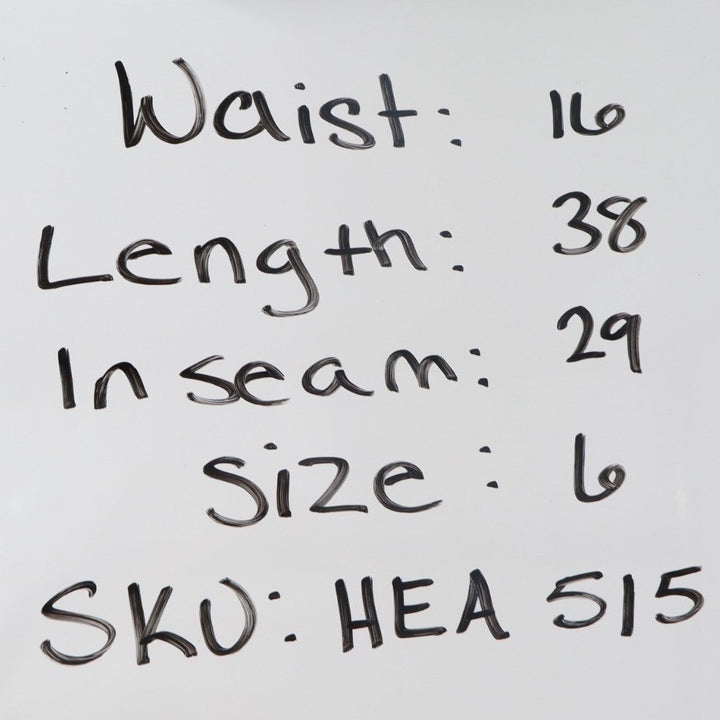 Waist: 16
Length: 38
Inseam: 29
Size: 6
SKU: HEA 515